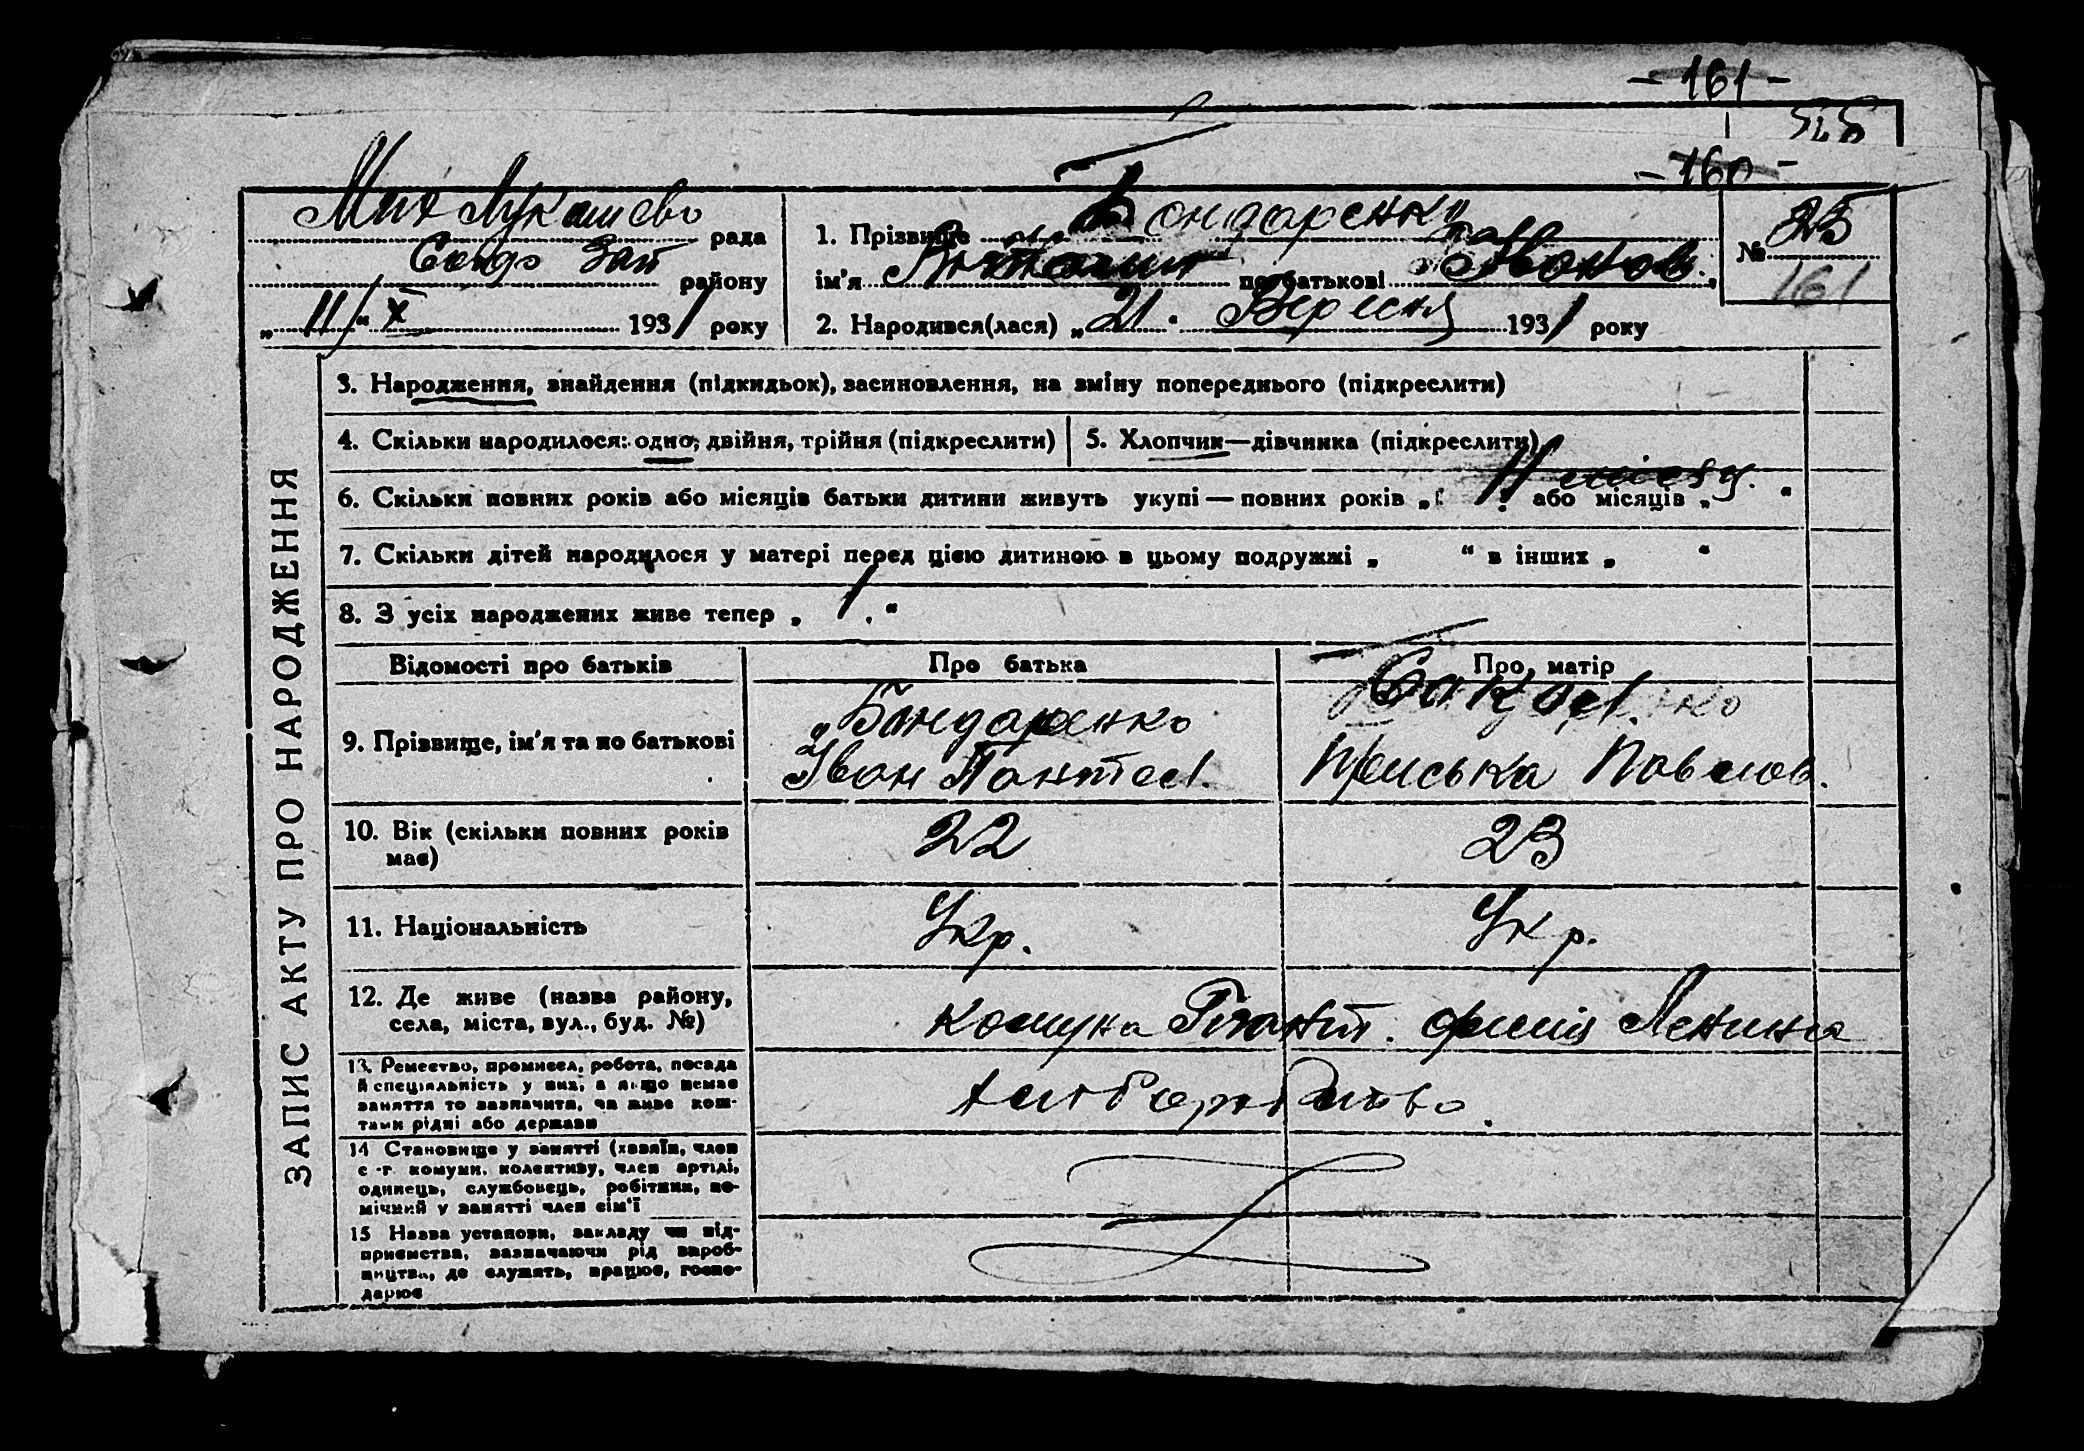 - 161 -
- 160 -
Мих Лукашево рада
району
„ 11 “ X 1931 року
1. Прізвище Бондаренко
ім'я по батькові Іванов.
2. Народився(лася) „ 21 “ Вересня 1931 року
№ 25
161
ЗАПИС АКТУ ПРО НАРОДЖЕННЯ
3. Народження, знайдення (підкидьок), засиновлення, на зміну попереднього (підкреслити)
4. Скільки народилося: одно, двійня, трійня (підкреслити)
5. Хлопчик—дівчинка (підкреслити)
6. Скільки повних років або місяців батьки дитини живуть укупі — повних років „ 11 або місяців „ “
7. Скільки дітей народилося у матері перед цією дитиною в цьому подружжі „ “ в інших „ “
8. З усіх народжених живе тепер „ 1 “
Відомості про батьків
Про батька
Про матір
9. Прізвище, ім'я та по батькові
Бондаренко
Іван Пантел.
Приська Павлов.
10. Вік (скільки повних років має)
22
23
11. Національність
Укр.
Укр.
12. Де живе (назва району, села, міста, вул., буд. №)
комуна Гігант. філія Леніна
13. Ремество, промисел, робота, посада
й спеціяльність у них, а якщо немає
заняття то зазначити, чи живе кош-
тами рідні або держави
хліборобство.
14 Становище у занятті (хазяїн, член
с.-г. комуни, колективу, член артілі,
одинець, службовець, робітник, по-
мічний у занятті член сім'ї
15 Назва установи, закладу чи під-
приємства, зазначаючи рід вироб-
ництва, де служить, працює, госпо-
дарює